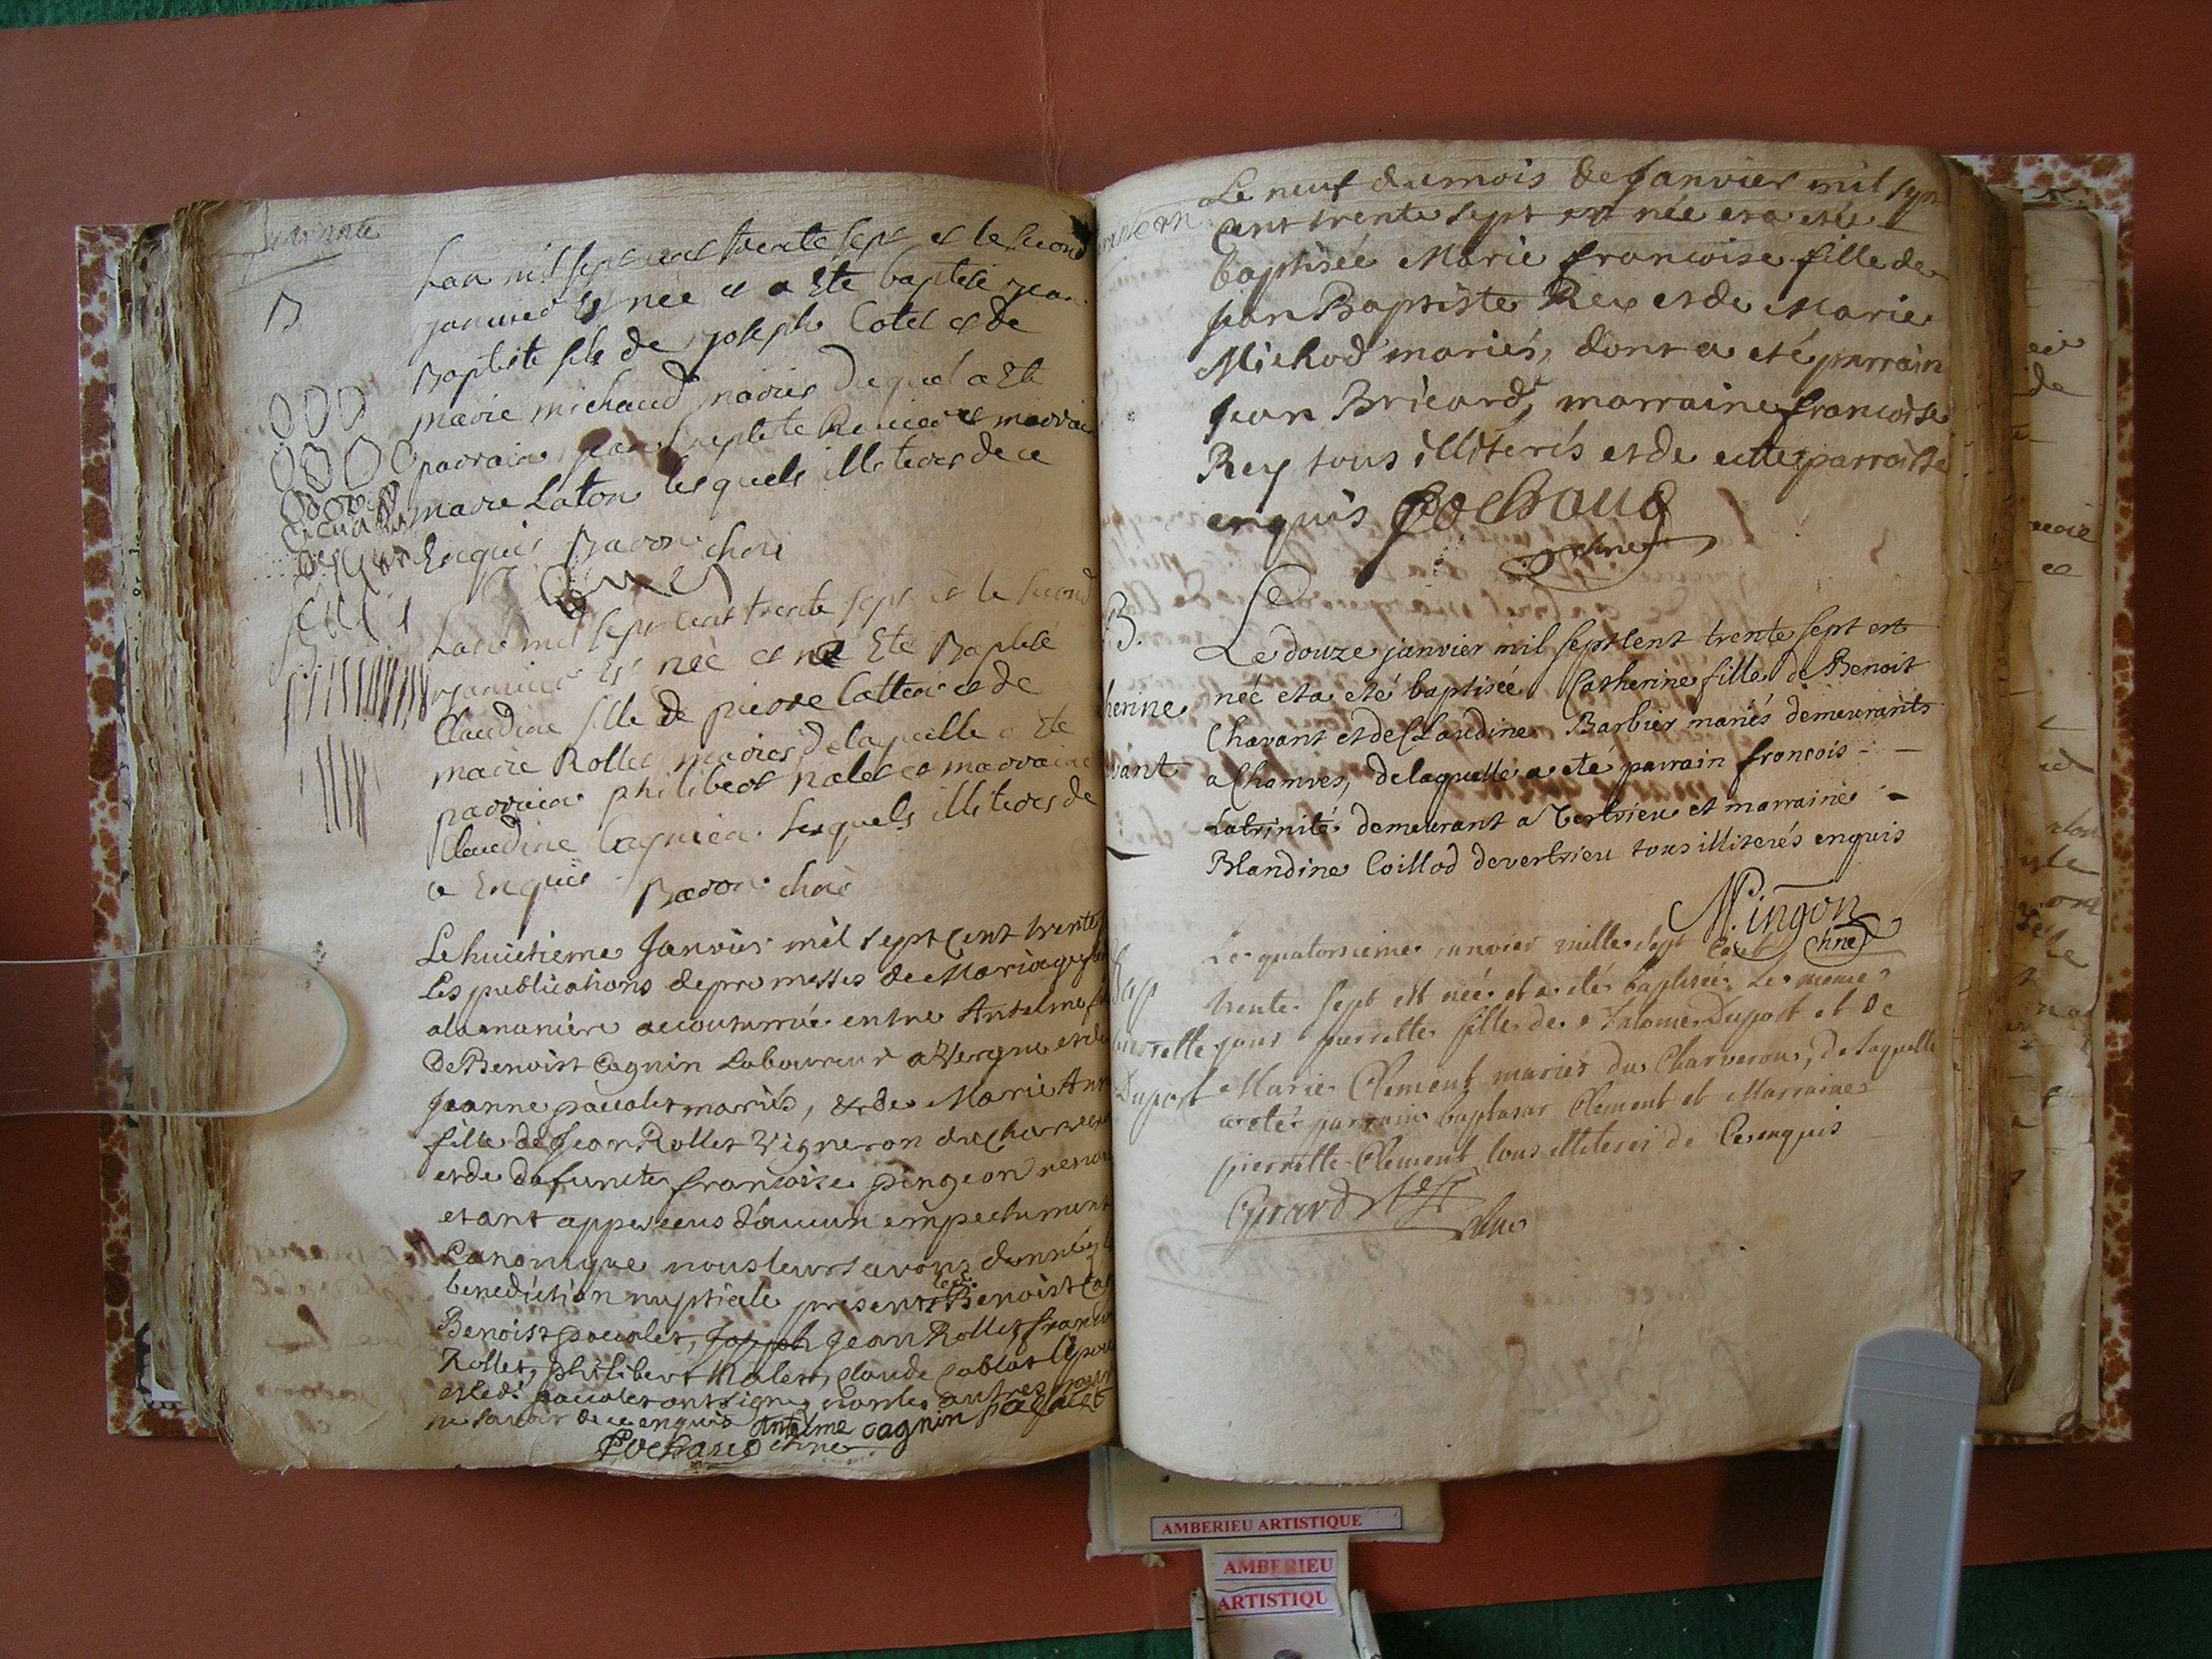 Lan mil sept cent trente sept et le second
janvier est née et a Ete baptisé jean
Baptiste fils de joseph Cotet et de
marie michaud mariés duquel a Ete
parrain jean baptiste et marrain
marie Laton lesquels illiteres de ce
Enquis Baron chne
Lan mil sept cent trente sept et le second
janvier Est née et Ete Baptisé
Claudine fille de pierre et de
marie Rollet mariés de laquelle a Ete
parrain philibert nalet et marraine
Claudine Cagnien lesquels illiteres de
ce Enquis Baron chne
Le huitième Janvier mil sept Cent trente
Les publications de promesses de Mariage
a la manière accoutumée entre Antelme
De Benoist Cagnin Laboureur a Vergne et de
Jeanne mariés, & de Marie An
fille de Jean Rollet Vigneron
et de defuncte francoise pingeon
etant apperceus d'aucun empechement
Canonique nous leurs avons donné
benediction nuptiale presents led. Benoist Ca
Benoist Joseph Jean Rollet
Rollet, philibert Nalet, Claude
et led. ont signé non les autres pour
ne savoir de ce enquis Antelme cagnin
Cochaud chne
Le neuf du mois de Janvier mil sept
Cent trente sept est née et a eté
baptisée Marie francoise fille de
Jean Baptiste Rey et de Marie
Michod mariés, dont a eté parrain
Jean Bricard, marraine francoise
Rey tous illiterés et de cette parroisse
enquis Cochaud
chne
Le
B.
Le douze janvier mil sept Cent trente sept est
herine née et a eté baptisée Catherine fille de Benoit
Chavant et de Claudine Barbier mariés demeurants
vant a Chamves, de laquelle a eté parrain francois
Latrinité demeurant a Vertrieu et marraine
Blandine Coillod de vertrieu tous illiterés enquis
Mingon
chne
Le quatorsieme janvier mille sept Cent
Bap trente sept est née et a eté baptisée Le meme
pierrette jour pierrette fille de Duport et de
Duport Marie Clement mariés du Charveron, de laquelle
a eté parrain baptasar Clement et Marraine
pierrette Clement tous illiteres de Ce enquis
Girard
chne
AMBERIEU ARTISTIQUE
AMBERIEU
ARTISTIQU